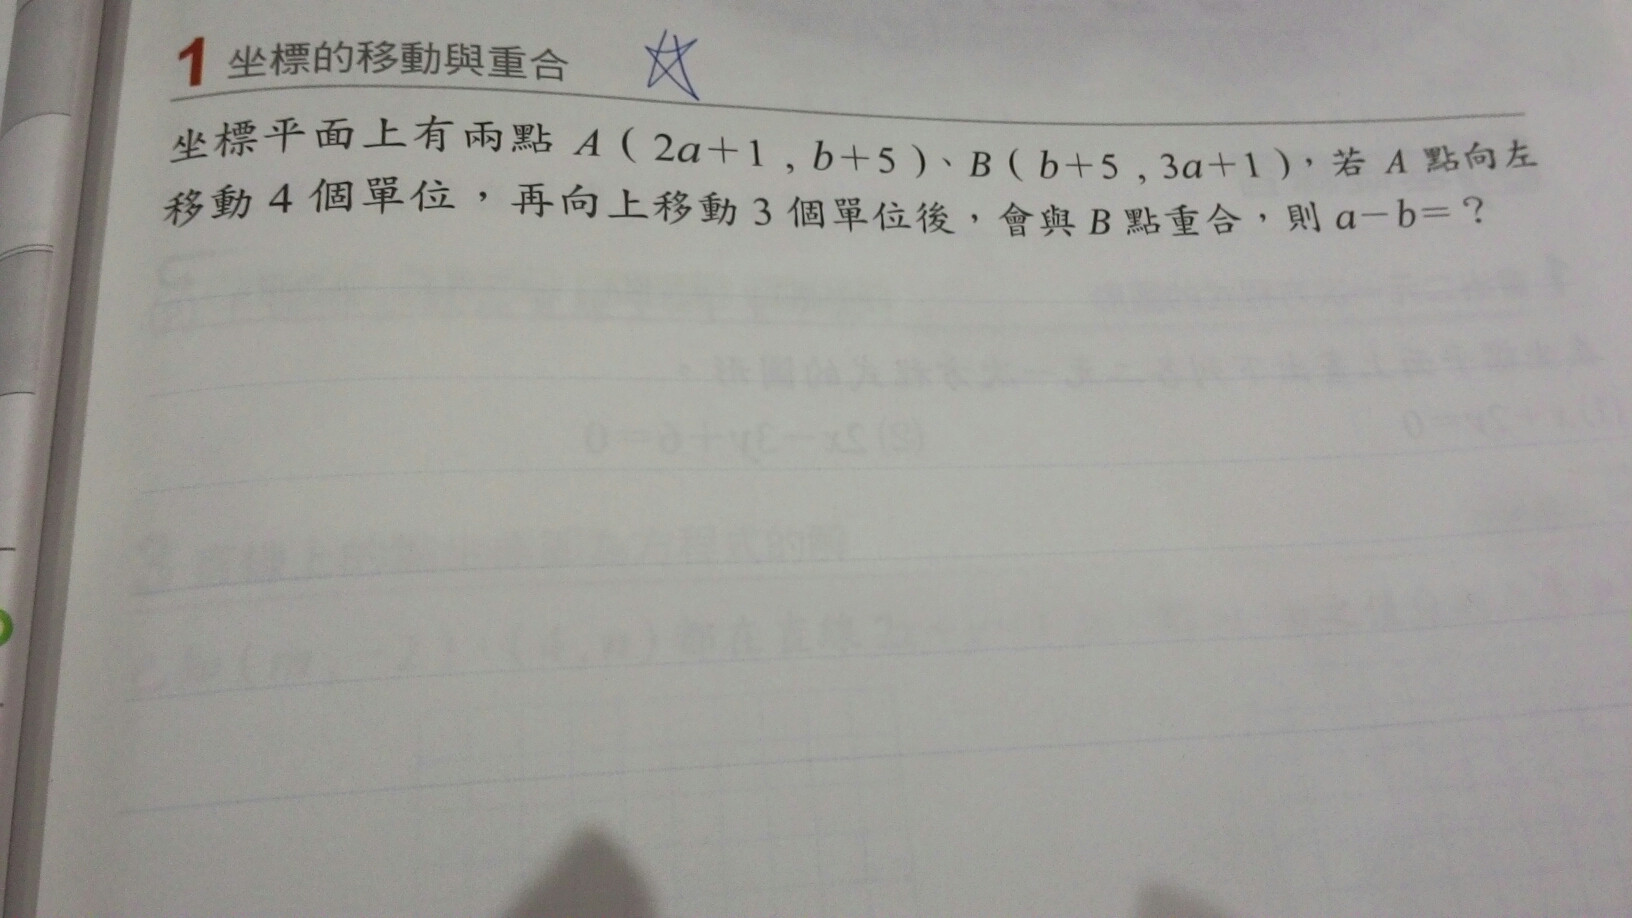 1 坐標的移動與重合
坐標平面上有兩點 A(2a+1,b+5)、B(b+5,3a+1),若 A 點向左
移動 4 個單位,再向上移動 3 個單位後,會與 B 點重合,則 a-b=?
(2) 2x-3y+6=0